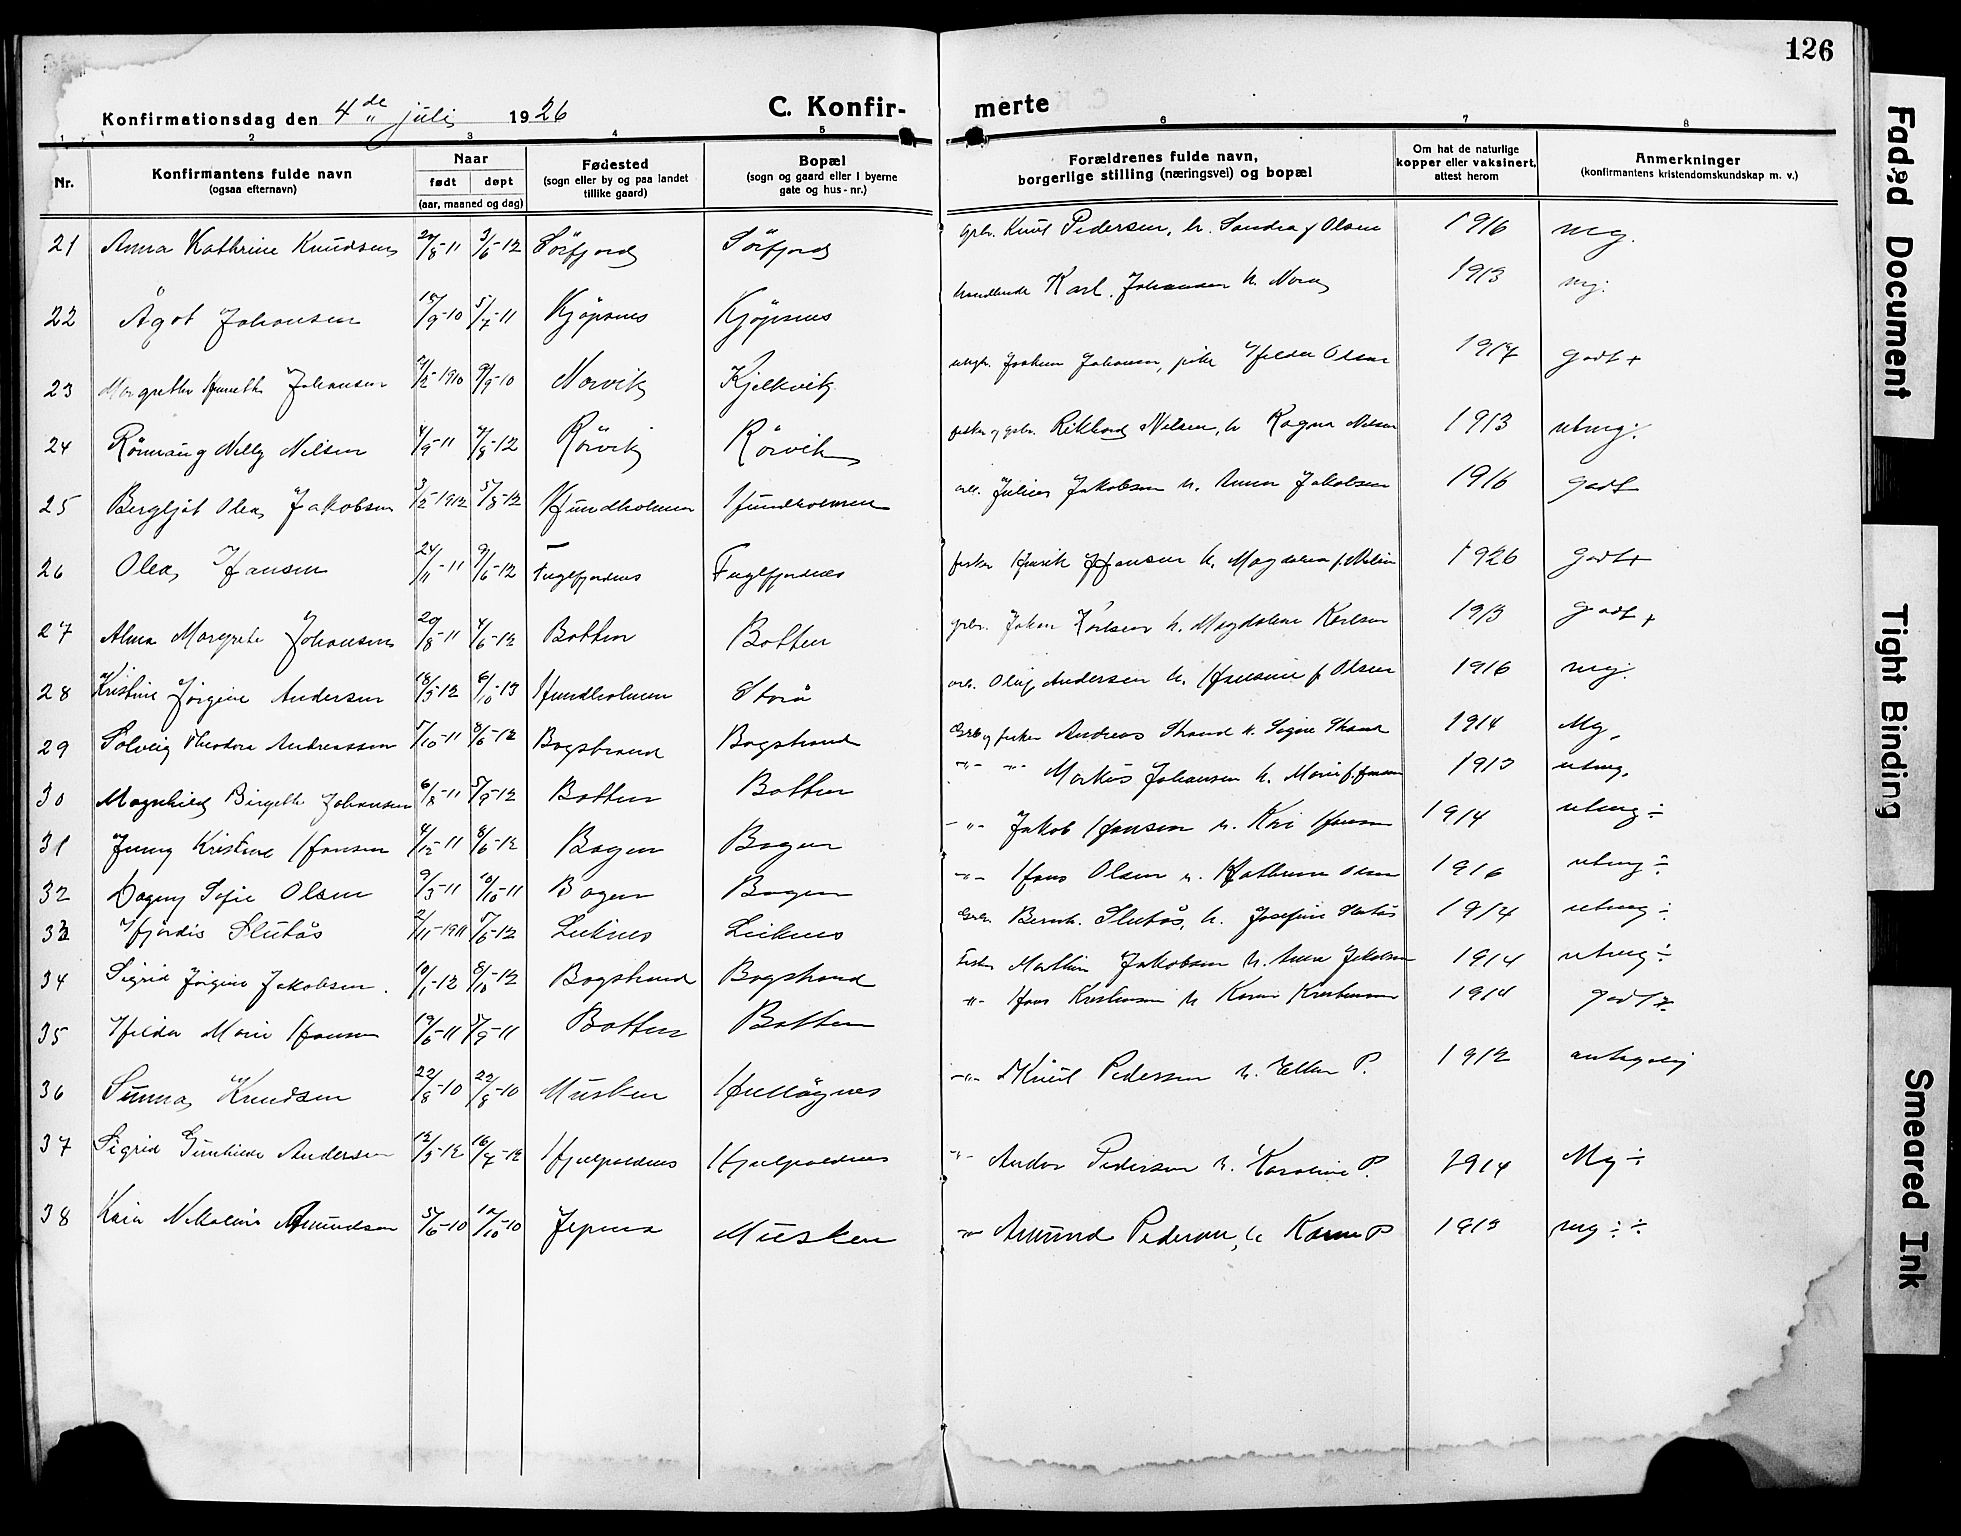 126
Konfirmationsdag den 4de juli 1926 C. Konfir- merte
1 2 3 4 5 6 7 8
Nr. Konfirmantens fulde navn (ogsaa efternavn) Naar født døpt (aar, maaned og dag) Fødested (sogn eller by og paa landet tillike gaard) Bopæl (sogn og gaard eller i byerne gate og hus-nr.) Forældrenes fulde navn, borgerlige stilling (næringsvei) og bopæl Om hat de naturlige kopper eller vaksinert, attest herom Anmerkninger (konfirmantens kristendomskundskap m. v.)
21 Anna Kathrine Knudsen 20/8-11 3/6-12 Sörfjord Sörfjord gbr. Knut Pedersen, h. Sandra f Olsen 1916 mg.
22 Ågot Johansen /9-10 5/7-11 Kjöpsnes Kjöpsnes handlende Karl Johansen h. Nora 1913 mg.
23 Johansen /2-1910 9/9-10 Norvik Kjelkvik Johansen, pike Hilda Olsen 1917 godt +
24 Rönnaug Nelly Nilsen 4/9-11 /8-12 Rörvik Rörvik fisker og gbr. Rikhard Nilsen, h Ragna Nilsen 1913 utmg.
25 Bergljot Olea Jakobsen 3/2-1912 5/8-12 Hundholmen Hundholmen arb. Julius Jakobsen h. Anna Jakobsen 1916 godt
26 Olea Hansen 24/11-11 9/6-12 Fuglfjordnes Fuglfjordnes fisker Henrik Hansen h. Magdalena f. Nilsen 1926 godt +
27 Alma Margrete Johansen 29/8-11 4/6-12 Botten Botten gbr. Johan Karlsen h. Magdalena Karlsen 1913 godt +
28 Kristine Jörgine Andersen 18/5-12 6/10-13 Hundholmen Storå arb. Oluf Andersen h. Hansine f Olsen 1916 mg.
29 Solveig Theodora Andreassen 5/10-11 8/6-12 Bogstrand Bogstrand Grb og fisker Andreas Strand h. Signe Strand 1914 Mg.
30 Magnhild Birgette Johansen 6/8-11 5/9-12 Botten Botten -"- -"- Markus Johansen h. Marie f. 1913 utmg.
31 Jenny Kristine Hansen 4/12-11 8/6-12 Bogen Bogen -"- Jakob Hansen h. Kari Hansen 1914 utmg ÷
32 Dagny Sofie Olsen 9/3-11 10/10-11 Bogen Bogen -"- Hans Olsen h. Kathrine Olsen 1916 utmg ÷
33 Hjördis Slutås 2/11-1911 5/6-12 Leiknes Leiknes Gbr. Bernh. Slutås, h. Josefine Slutås 1914 utmg ÷
34 Sigrid Jörgine Jakobsen. 10/1-12 8/10-12 Bogstrand Bogstrand Fisker Martin Jakobsen h. Anna Jakobsen 1914 utmg ÷
35 Hilda Marie Hansen 19/6-11 5/9-11 Botten Botten -"- Hans Kristensen h Karen Kristensen 1914 godt
36 Sunna Knudsen 22/8-10 22/8-10 Musken Hellognes -"- Knut Pedersen h. Ellen P. 1912 antagelig
37 Sigrid Gunhilde Andersen 12/3-12 16/7-12 Hjelpoldnes Hjelpoldnes -"- Andor Pedersen h. Karoline P. 1914 Mg ÷
38 Kaia Nikoline Amundsen 5/6-10 12/10-10 Jepma Musken -"- Amund Pedersen, h Karen P 1913 mg ÷ ÷
Faded Document
Tight Binding
Smeared Ink